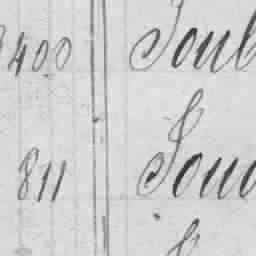 400 Soul
811 Soud